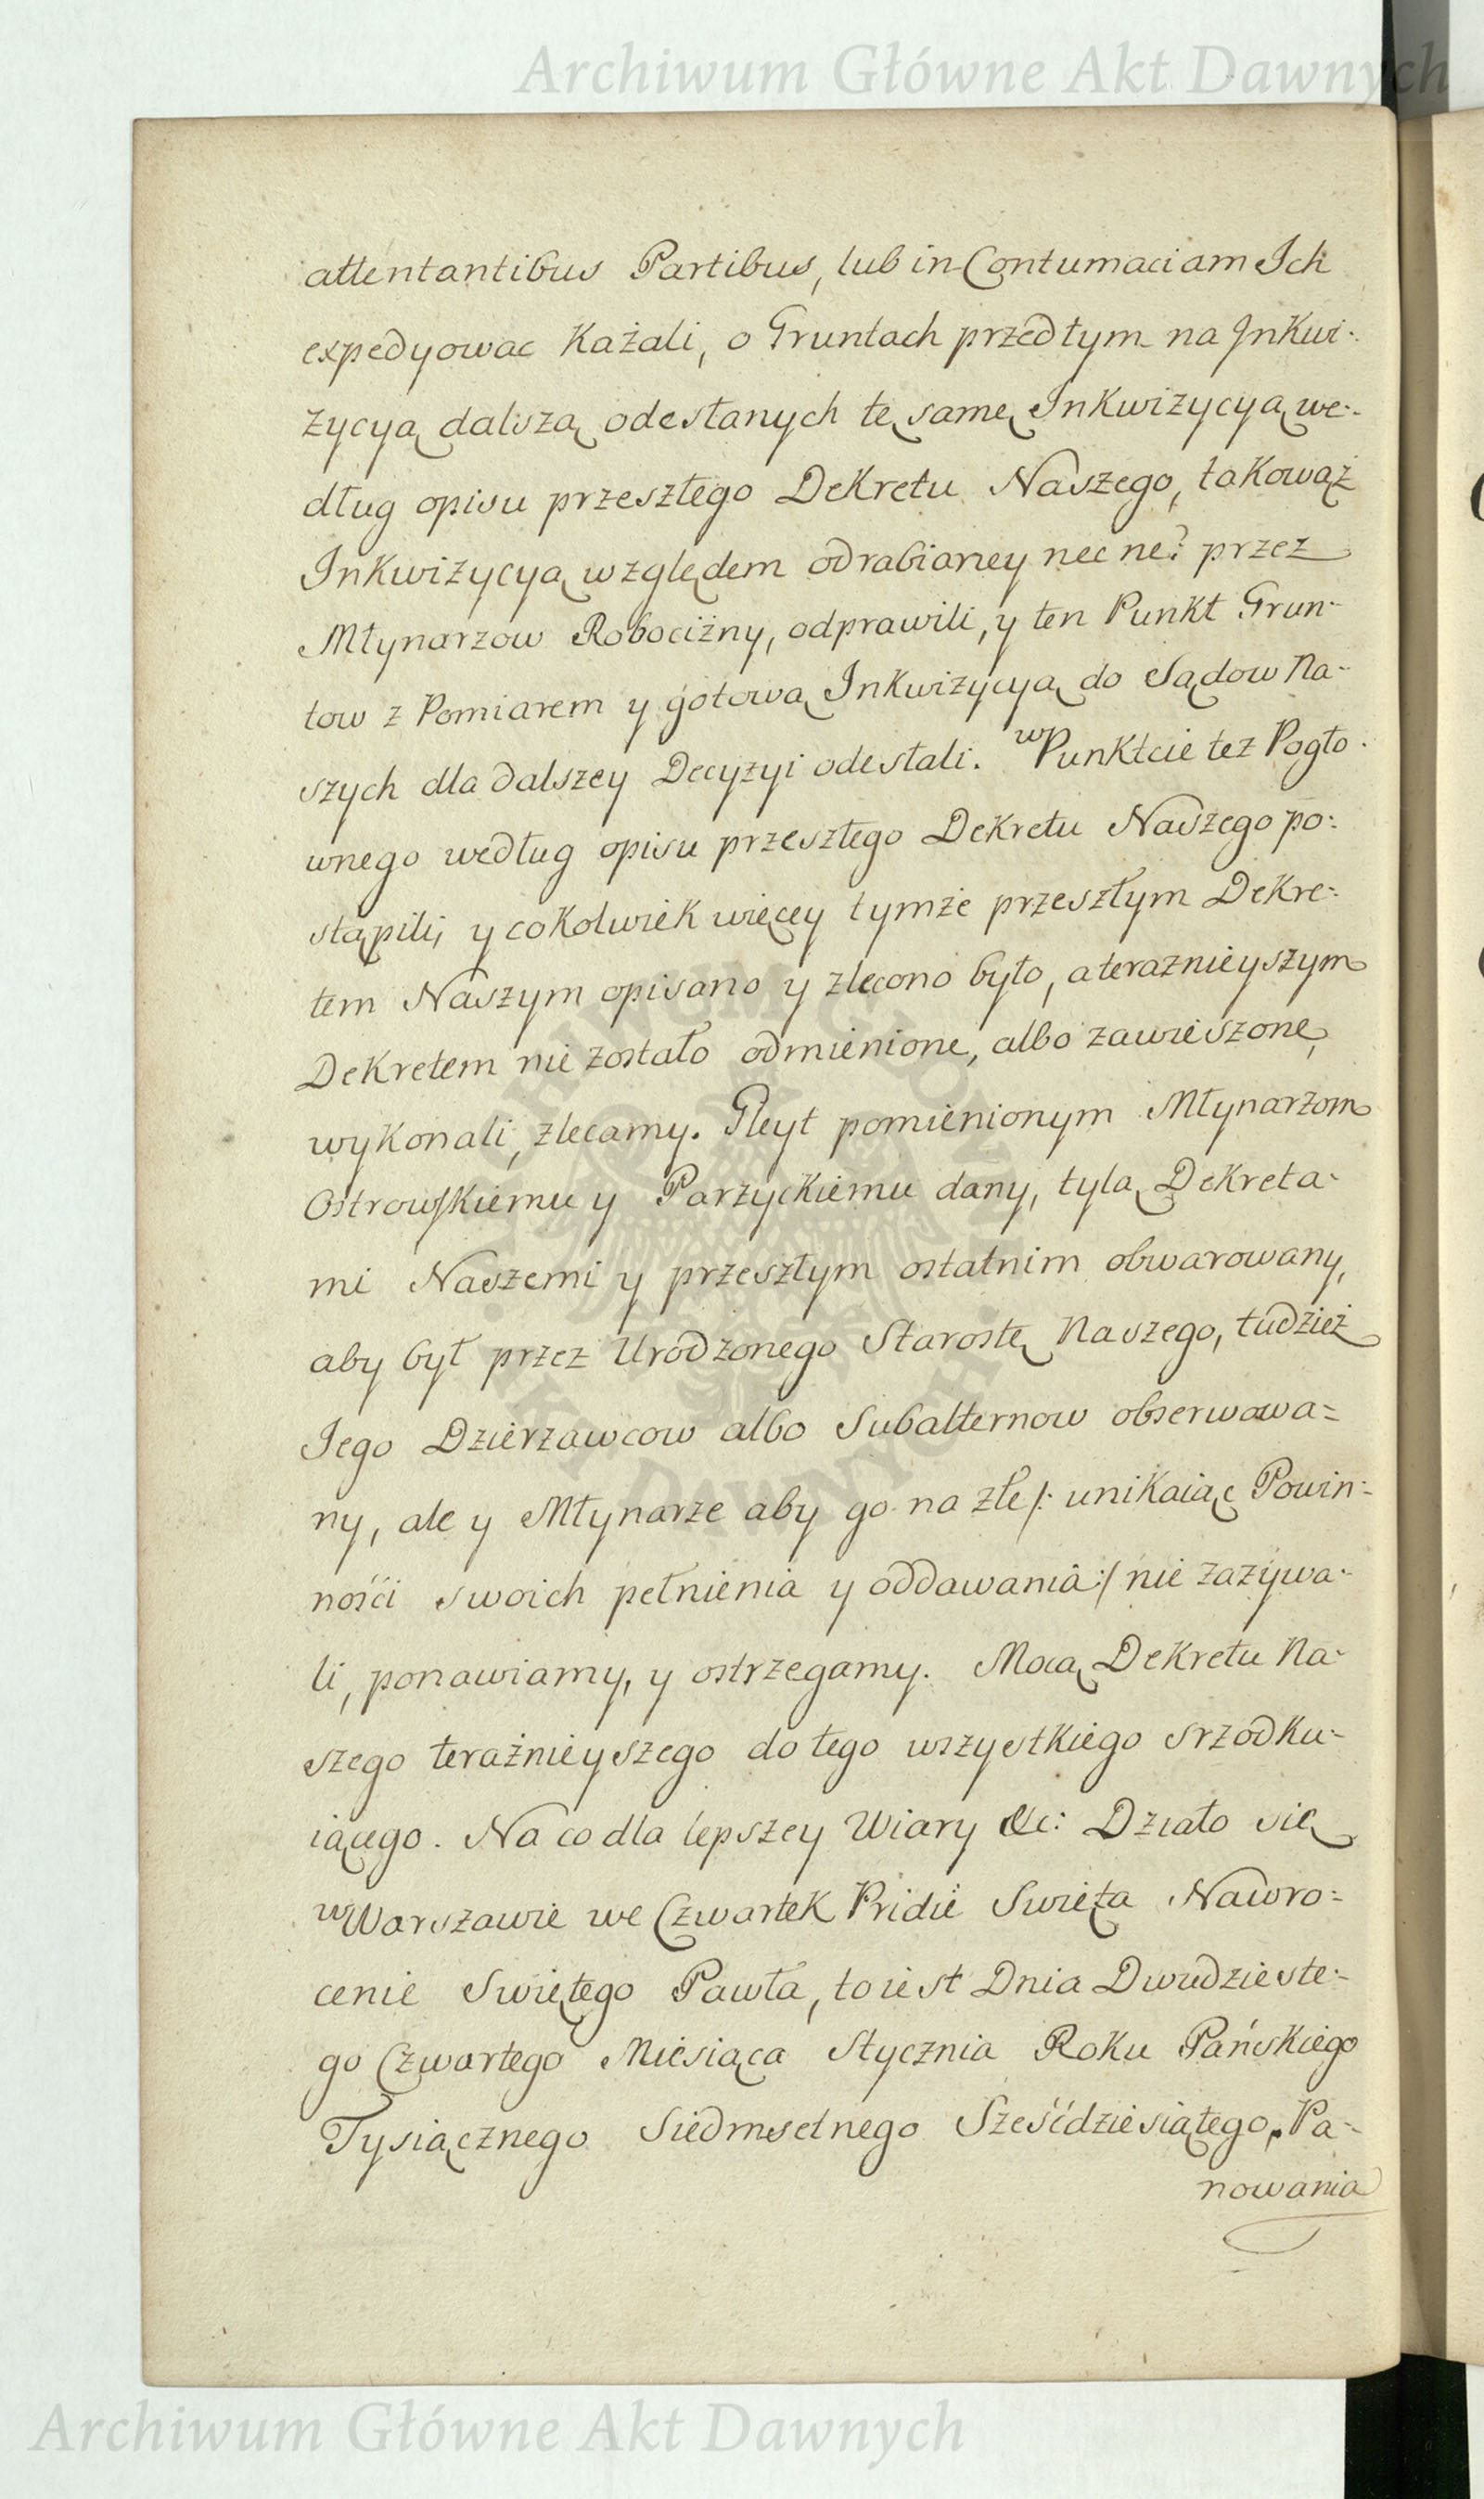 Archiwum Główne Akt Dawnych
attentantibus Partibus, lub in Contumaciam Ich
expedyowac Każali, o Gruntach przedtym na Inkwi-
zycyą dalszą odesłanych tę samę Inkwizycyą we-
dług opisu przeszłego Dekretu Naszego, takowąż
Inkwizycyą względem odrabianey nec ne? przez
Młynarzow Robociżny, odprawili, y ten Punkt Grun-
tow z Pomiarem y gotową Inkwizycyą do Sądow Na-
szych dla dalszey Decyzyi odesłali. w Punktcie też Pogło-
wnego według opisu przeszłego Dekretu Naszego po-
stąpili, y cokolwiek więcey tymże przeszłym Dekre-
tem Naszym opisano y zlecono było, a teraznieyszym
Dekretem nie zostało odmienione, albo zawieszone,
wykonali, zlecamy. Gleyt pomienionym Młynarzom
Ostrowskiemu y Parzyckiemu dany, tylą Dekreta-
mi Naszemi y przeszłym ostatnim obwarowany,
aby był przez Urodzonego Starostę Naszego, tudzież
Jego Dzierzawcow albo Subalternow obserwowa=
ny, ale y Młynarze aby go na złe /: unikaiąc Powin-
ności swoich pełnienia y oddawania :/ nie zazywa-
li, ponawiamy, y ostrzegamy. Mocą Dekretu Na-
szego teraźnieyszego do tego wszystkiego srzodku-
iącego. Na co dla lepszey Wiary &c: Działo się
w Warszawie we Czwartek Pridie Swięta Nawro-
cenie Swiętego Pawła, to iest Dnia Dwudzieste-
go Czwartego Miesiąca Stycznia Roku Pańskiego
Tysiącznego Siedmsetnego Sześćdziesiątego, Pa-
nowania
Archiwum Główne Akt Dawnych